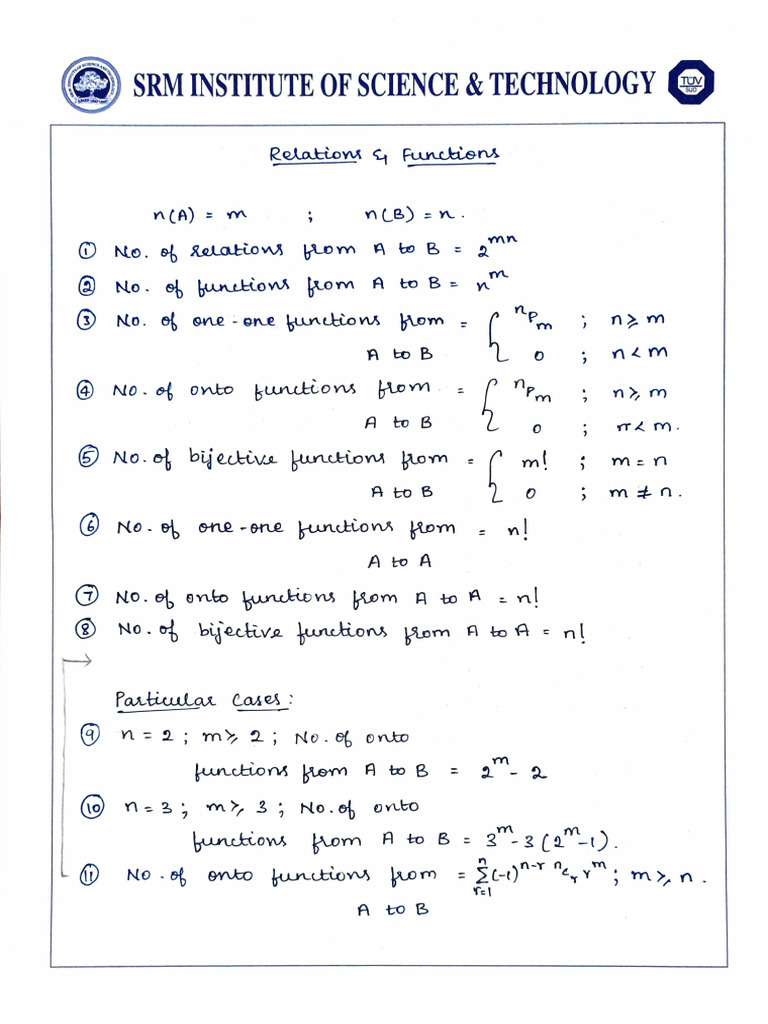 SRM INSTITUTE OF SCIENCE & TECHNOLOGY
TÜV
SUD
Relations & Functions
n(A) = m ; n(B) = n.
① No. of relations from A to B = 2^{mn}
② No. of functions from A to B = n^m
③ No. of one-one functions from = { ^nP_m ; n ≥ m
A to B 0 ; n < m
④ No. of onto functions from = { ^nP_m ; n ≥ m
A to B 0 ; n < m.
⑤ No. of bijective functions from = { m! ; m = n
A to B 0 ; m ≠ n.
⑥ No. of one-one functions from = n!
A to A
⑦ No. of onto functions from A to A = n!
⑧ No. of bijective functions from A to A = n!
Particular Cases:
⑨ n = 2 ; m ≥ 2 ; No. of onto
functions from A to B = 2^m - 2
⑩ n = 3 ; m ≥ 3 ; No. of onto
functions from A to B = 3^m - 3(2^m - 1).
⑪ No. of onto functions from = Σ_{r=1}^{n} (-1)^{n-r} ^nC_r r^m ; m ≥ n.
A to B